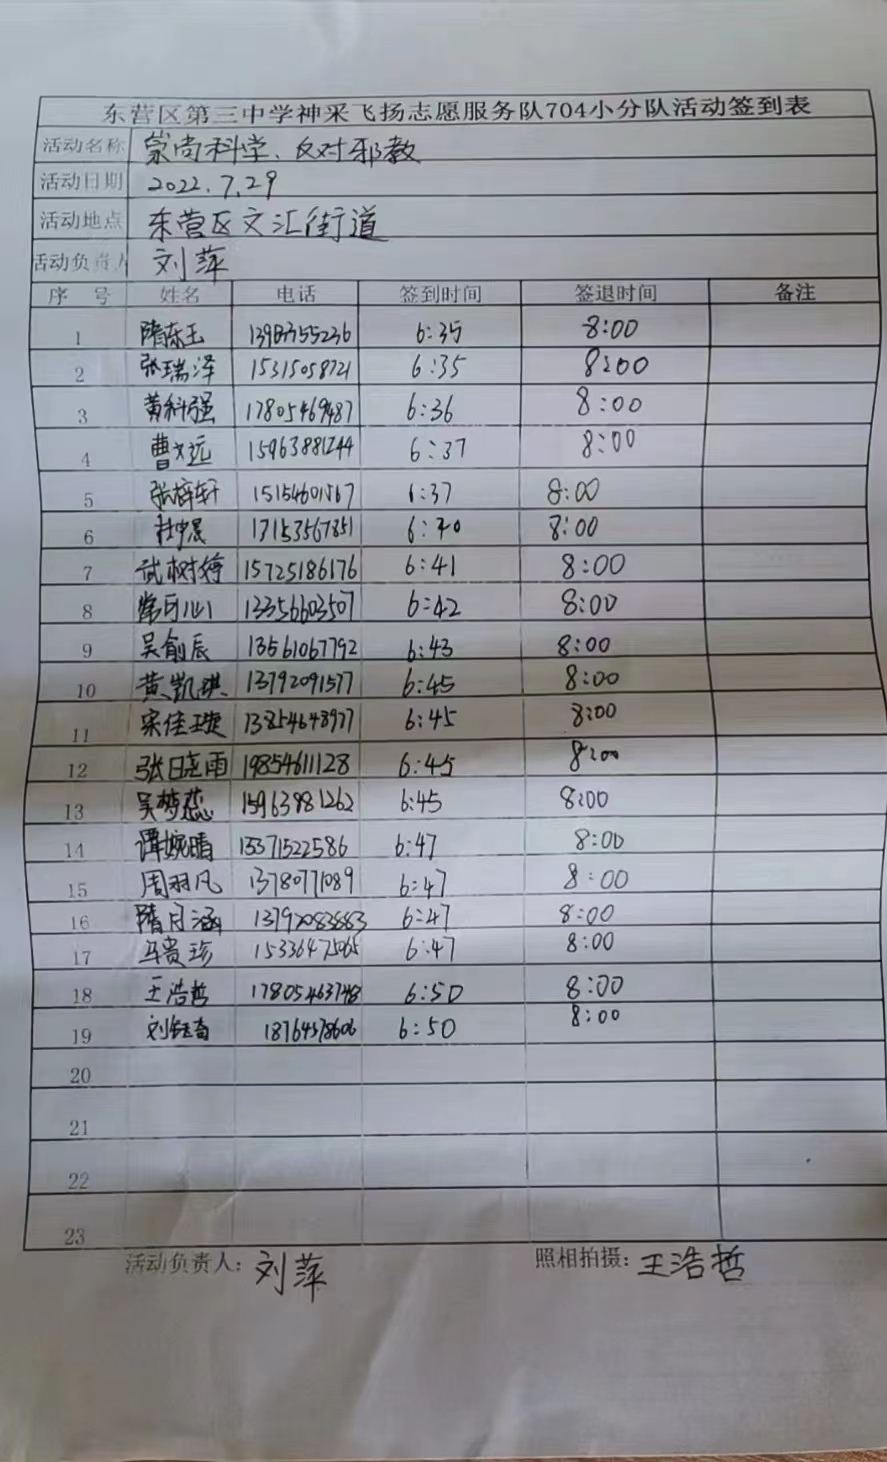 东营区第三中学神采飞扬志愿服务队704小分队活动签到表
活动名称 崇尚科学、反对邪教
活动日期 2022.7.29
活动地点 东营区文汇街道
活动负责人 刘萍
序号 姓名 电话 签到时间 签退时间 备注
1 隋东玉 6:35 8:00
2 张瑞泽 15315058721 6:35 8:00
3 黄科强 17805469487 6:36 8:00
4 曹文远 15963881244 6:37 8:00
5 张梓轩 15154601567 6:37 8:00
6 17153567851 6:40 8:00
7 15725186176 6:41 8:00
8 常可心 13356603507 6:42 8:00
9 吴俞辰 13561067792 6:43 8:00
10 黄凯琪 13792091577 6:45 8:00
11 宋佳婕 13854648977 6:45 8:00
12 张晓雨 19854611128 6:45 8:00
13 吴梦蕊 15963981262 6:45 8:00
14 谭婉晴 15371522586 6:47 8:00
15 周羽凡 13780771089 6:47 8:00
16 隋月涵 13792083883 6:47 8:00
17 马贵珍 15336475065 6:47 8:00
18 王浩哲 17805463748 6:50 8:00
19 刘钰奇 18764578606 6:50 8:00
20
21
22
23
活动负责人：刘萍 照相拍摄：王浩哲